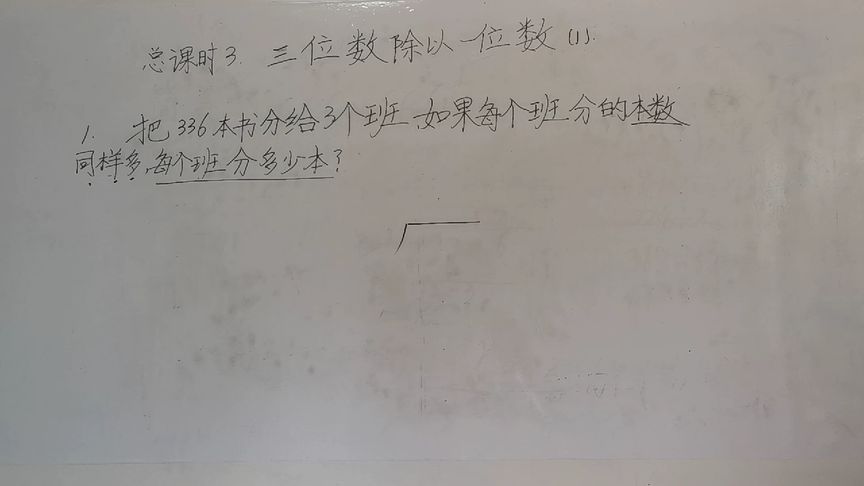 总课时3. 三位数除以一位数(1).
1. 把336本书分给3个班,如果每个班分的本数
同样多,每个班分多少本?